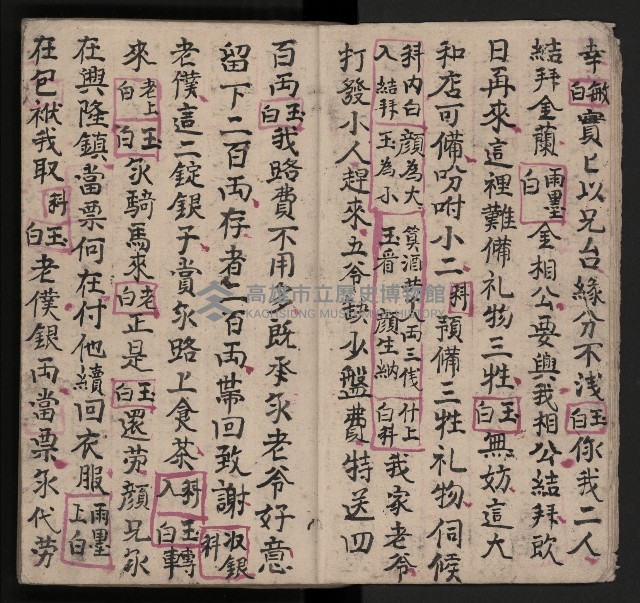 幸敏白實已以兄台緣分不浅玉白你我二人
結拜金蘭雨墨白金相公要與我相公結拜歃
日再來這裡難備礼物三牲玉白無妨這大
和店可備吩咐小二科預備三牲礼物伺候
科內白顔為大筭酒菜銀両三伐什上
入結拜玉為小玉晋顔生納白科我家老爷
打發小人趕來五爷缺少盤費特送四
百両玉白我路費不用多既承永老爷好意
留下二百両存者二百両帶回致謝收銀科
老僕這二錠銀子賞永路上食茶科入玉白轉
來老上白玉白永騎馬來老白正是玉白還劳顔兄永
在興隆鎮當票何在付他續回衣服雨墨上白
在包袱我取科玉白老僕銀両當票永代劳
高雄市立歷史博物館
KAOHSIUNG MUSEUM OF HISTORY